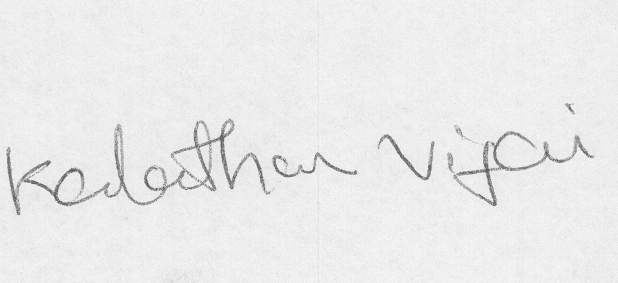 Kadasthan Vijai